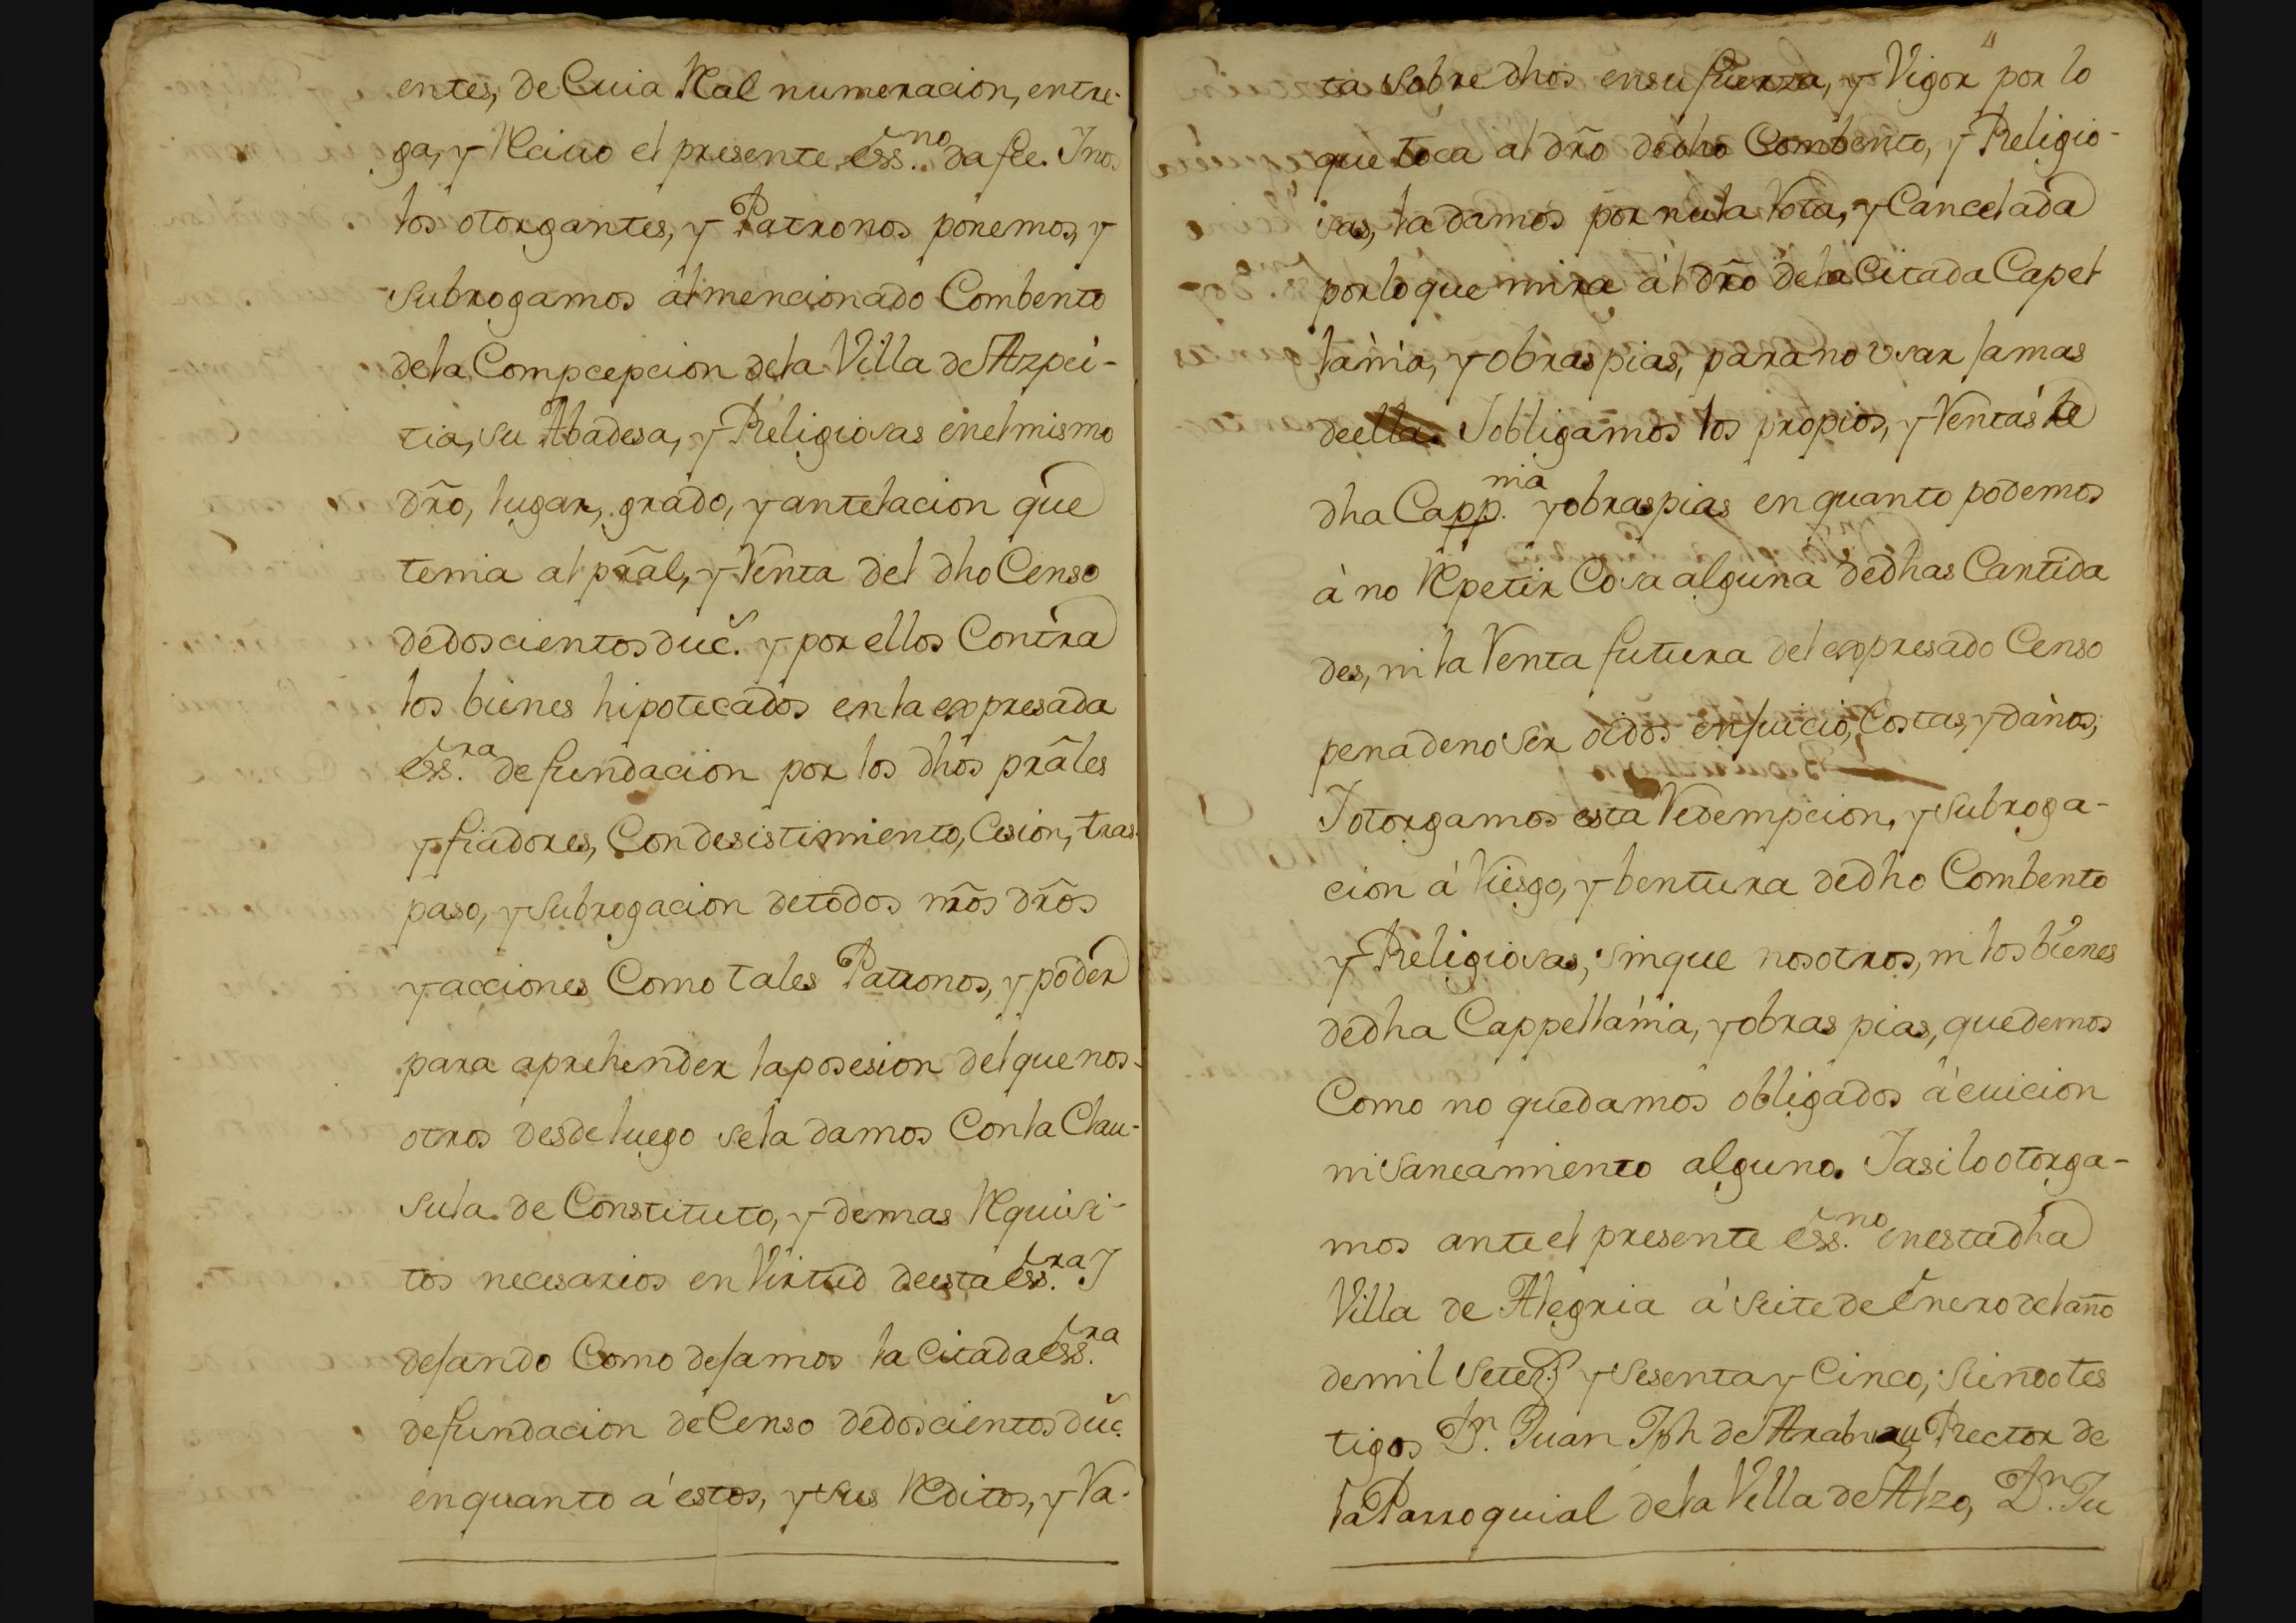 entes, de Cuia Real numeracion, entre-
ga, y Reciuo el presente ess.no da fee. Inos
los otorgantes, y Patronos ponemos, y
subrogamos al mencionado Combento
dela Compcepcion dela Villa de Azpei-
tia, su Abadesa, y Religiosas enel mismo
dr̃o, lugar, grado, y antelacion que
tenia al pr̃al, y Renta del dho Censo
dedoscientos duc.s y por ellos Contra
los bienes hipotecados enla expresada
ess.ra de fundacion por los dhos pr̃ales
y fiadores, Con desistimiento, Cesion, tras-
paso, y subrogacion detodos nr̃os dr̃os
y acciones Como tales Patronos, y poder
para aprehender laposesion del que nos-
otros desde luego sela damos Conla Clau-
sula de Constituto, y demas Requisi-
tos necesarios en Virtud deesta ess.ra I
dejando Como dejamos la citada ess.ra
defundacion de Censo dedoscientos duc.s
enquanto á estos, y sus Reditos, y Ra-
4
ta sobre dhos ensu fuerza, y Vigor por lo
que toca al dr̃o dedho Combento, y Religio-
sas, la damos por nula Rota, y Cancelada
porlo que mira ál dr̃o dela Citada Capel
lania, y obras pias, para no usar jamas
deella. I obligamos los propios, y Rentas de
dha Capp.nia y obras pias en quanto podemos
à no Repetir Cosa alguna dedhas Cantida
des, ni la Renta futura del expresado Censo
pena deno ser oidos enjuicio, Costas, y daños,
I otorgamos esta Redempcion, y subroga-
cion á Riesgo, y bentura dedho Combento
y Religiosas, sinque nosotros, ni los bienes
dedha Cappellania, y obras pias, quedemos
Como no quedamos obligados á euicion
ni saneamiento alguno. I asi lo otorga-
mos ante el presente ess.no enesta dha
Villa de Alegria á siete de Enero del año
demil setez.s y sesenta y Cinco, siendo tes
tigos D.n Juan Jph de Rector de
la Parroquial dela Villa de Alzo, D.n Ju